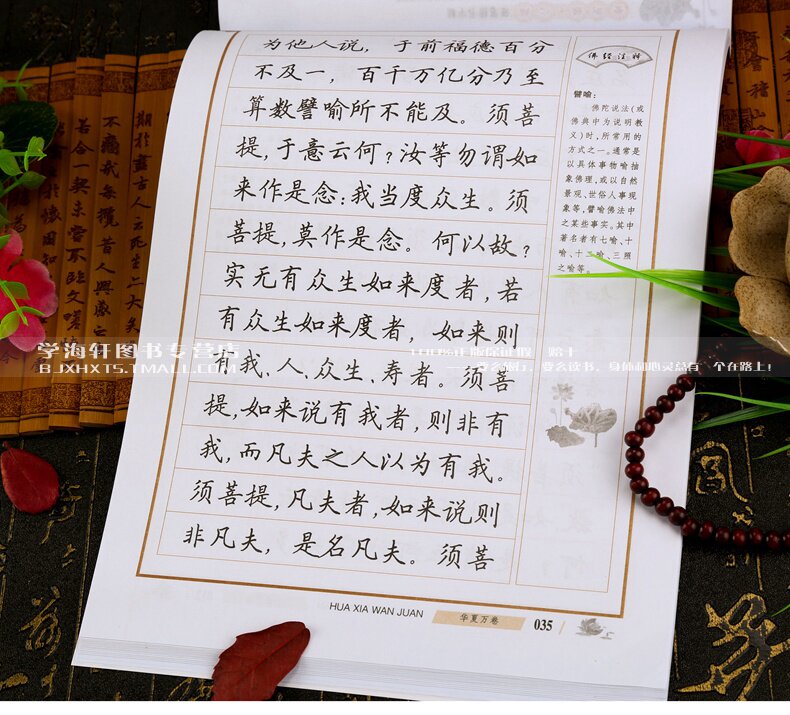 为他人说，于前福德百分
不及一，百千万亿分乃至
算数譬喻所不能及。须菩
提，于意云何？汝等勿谓如
来作是念：我当度众生。须
菩提，莫作是念。何以故？
实无有众生如来度者，若
有众生如来度者，如来则
有我、人、众生、寿者。须菩
提，如来说有我者，则非有
我，而凡夫之人以为有我。
须菩提，凡夫者，如来说则
非凡夫，是名凡夫。须菩
佛经注释
譬喻：
佛陀说法（或
佛典中为说明教
义）时，所常用的
方式之一。通常是
以具体事物喻抽
象佛理，或以自然
景观、世俗人事现
象等，譬喻佛法中
之某些事实。其中
著名者有七喻、十
喻、十二喻、三照
之喻等。
HUA XIA WAN JUAN
华夏万卷
035
学海轩图书专营店
BJXHXTS.TMALL.COM
100%正版保证假一赔十
要么旅行，要么读书，身体和心灵总有一个在路上！